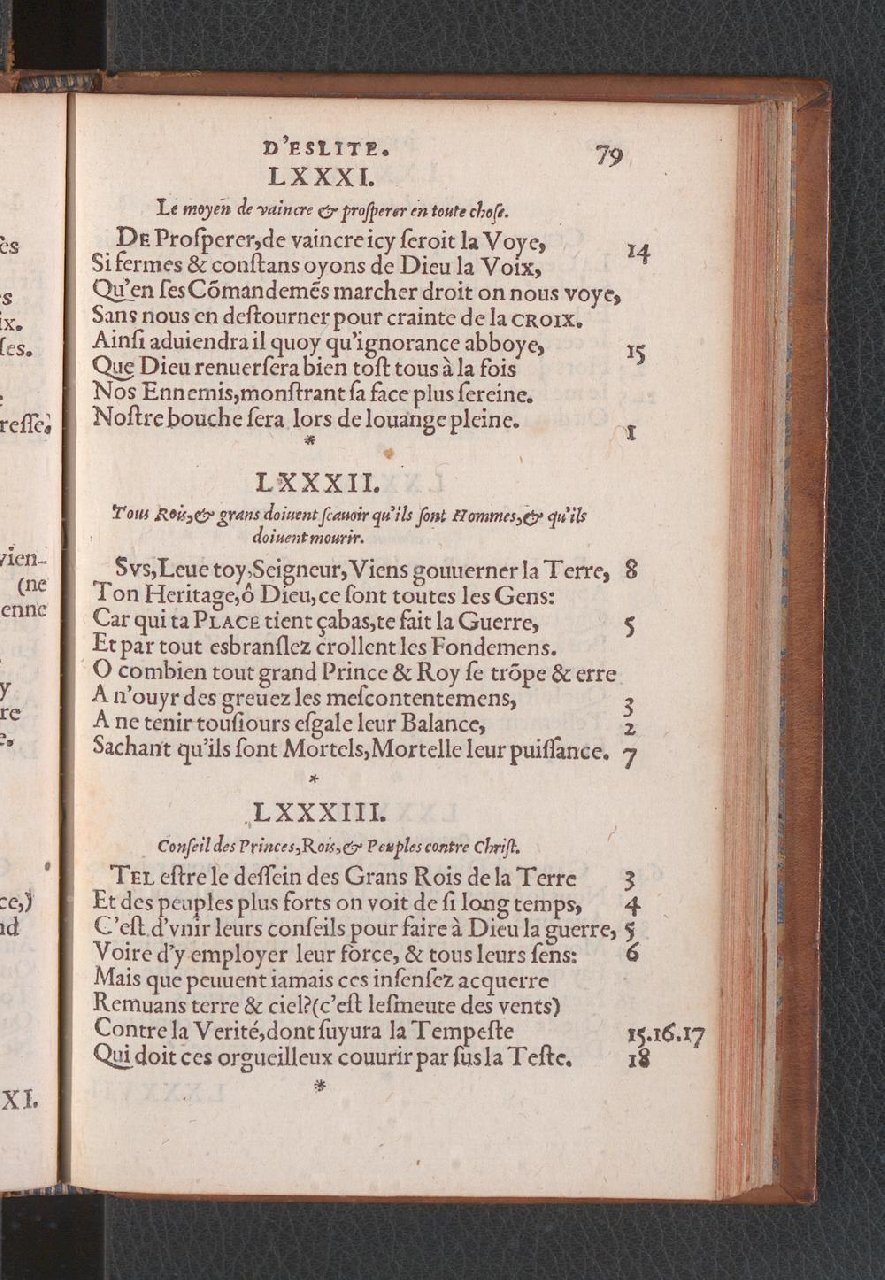 es
s
ix.
ſes.
e
reſſe,
vien-
(ne
enne
y
re
e,
ce,)
nd
XI.
D'ESLITE. 79
LXXXI.
Le moyen de vaincre & proſperer en toute choſe.
DE Proſperer, de vaincre icy ſeroit la Voye, 14
Si fermes & conſtans oyons de Dieu la Voix,
Qu'en ſes Cõmandemẽs marcher droit on nous voye,
Sans nous en deſtourner pour crainte de la CROIX.
Ainſi aduiendra il quoy qu'ignorance abboye, 15
Que Dieu renuerſera bien toſt tous à la fois
Nos Ennemis, monſtrant ſa face plus ſereine.
Noſtre bouche ſera lors de louange pleine. 1
*
LXXXII.
Tous Rois, & grans doiuent ſcauoir qu'ils ſont Hommes, & qu'ils
doiuent mourir.
SVS, Leue toy, Seigneur, Viens gouuerner la Terre, 8
Ton Heritage, ô Dieu, ce ſont toutes les Gens:
Car qui ta PLACE tient çabas, te fait la Guerre, 5
Et par tout esbranſlez crollent les Fondemens.
O combien tout grand Prince & Roy ſe trõpe & erre
A n'ouyr des greuez les meſcontentemens, 3
A ne tenir touſiours eſgale leur Balance, 2
Sachant qu'ils ſont Mortels, Mortelle leur puiſſance. 7
*
LXXXIII.
Conſeil des Princes, Rois, & Peuples contre Chriſt.
TEL eſtre le deſſein des Grans Rois de la Terre 3
Et des peuples plus forts on voit de ſi long temps, 4
C'eſt d'vnir leurs conſeils pour faire à Dieu la guerre, 5
Voire d'y employer leur force, & tous leurs ſens: 6
Mais que peuuent iamais ces inſenſez acquerre
Remuans terre & ciel? (c'eſt leſmeute des vents)
Contre la Verité, dont ſuyura la Tempeſte 15.16.17
Qui doit ces orgueilleux couurir par ſus la Teſte. 18
*